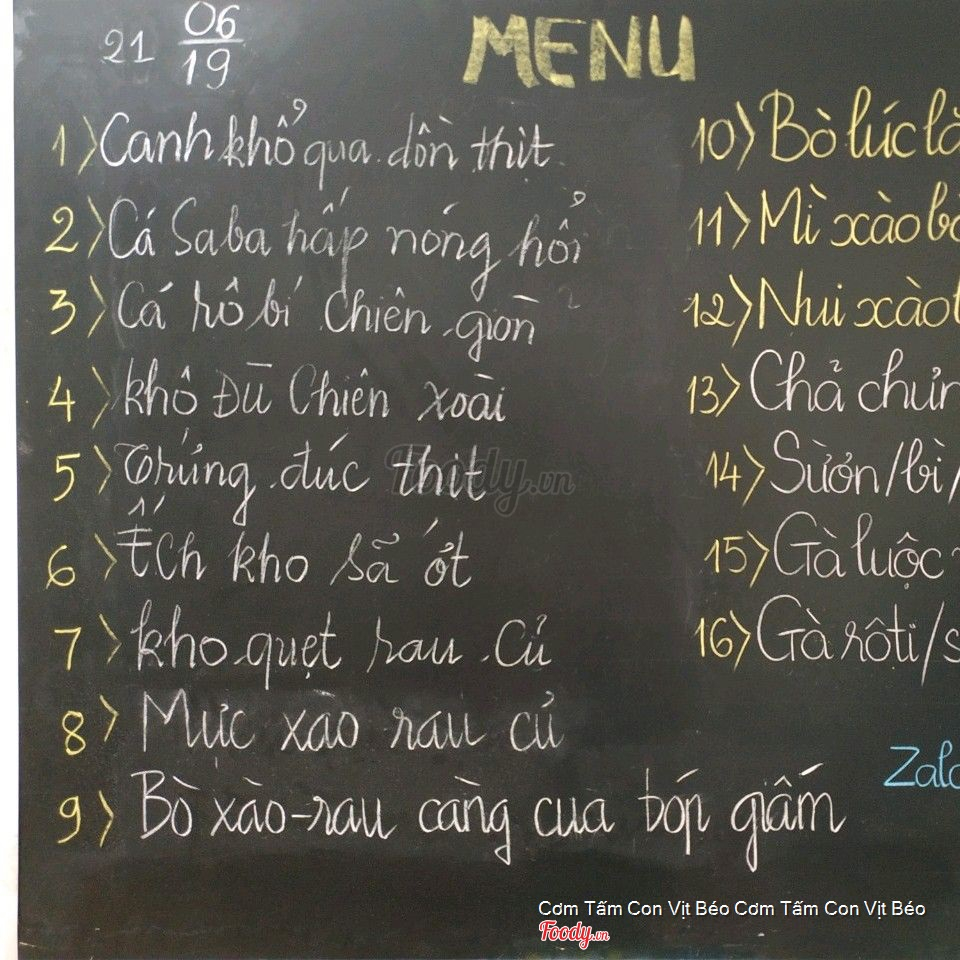 21 06/19
MENU
1) Canh khổ qua dồn thịt
2) Cá Saba hấp nóng hổi
3) Cá rô bí chiên giòn
4) khô Đù Chiên xoài
5) Trứng đúc thịt
6) Ếch kho sả ớt
7) kho quẹt rau củ
8) Mực xào rau củ
9) Bò xào-rau càng cua bóp giấm
10) Bò lúc
11) Mì xào
12) Nui xào
13) Chả
14) Sườn/bì/
15) Gà luộc
16) Gà rôti/
Foody.vn
Cơm Tấm Con Vịt Béo Cơm Tấm Con Vịt Béo
Foody.vn